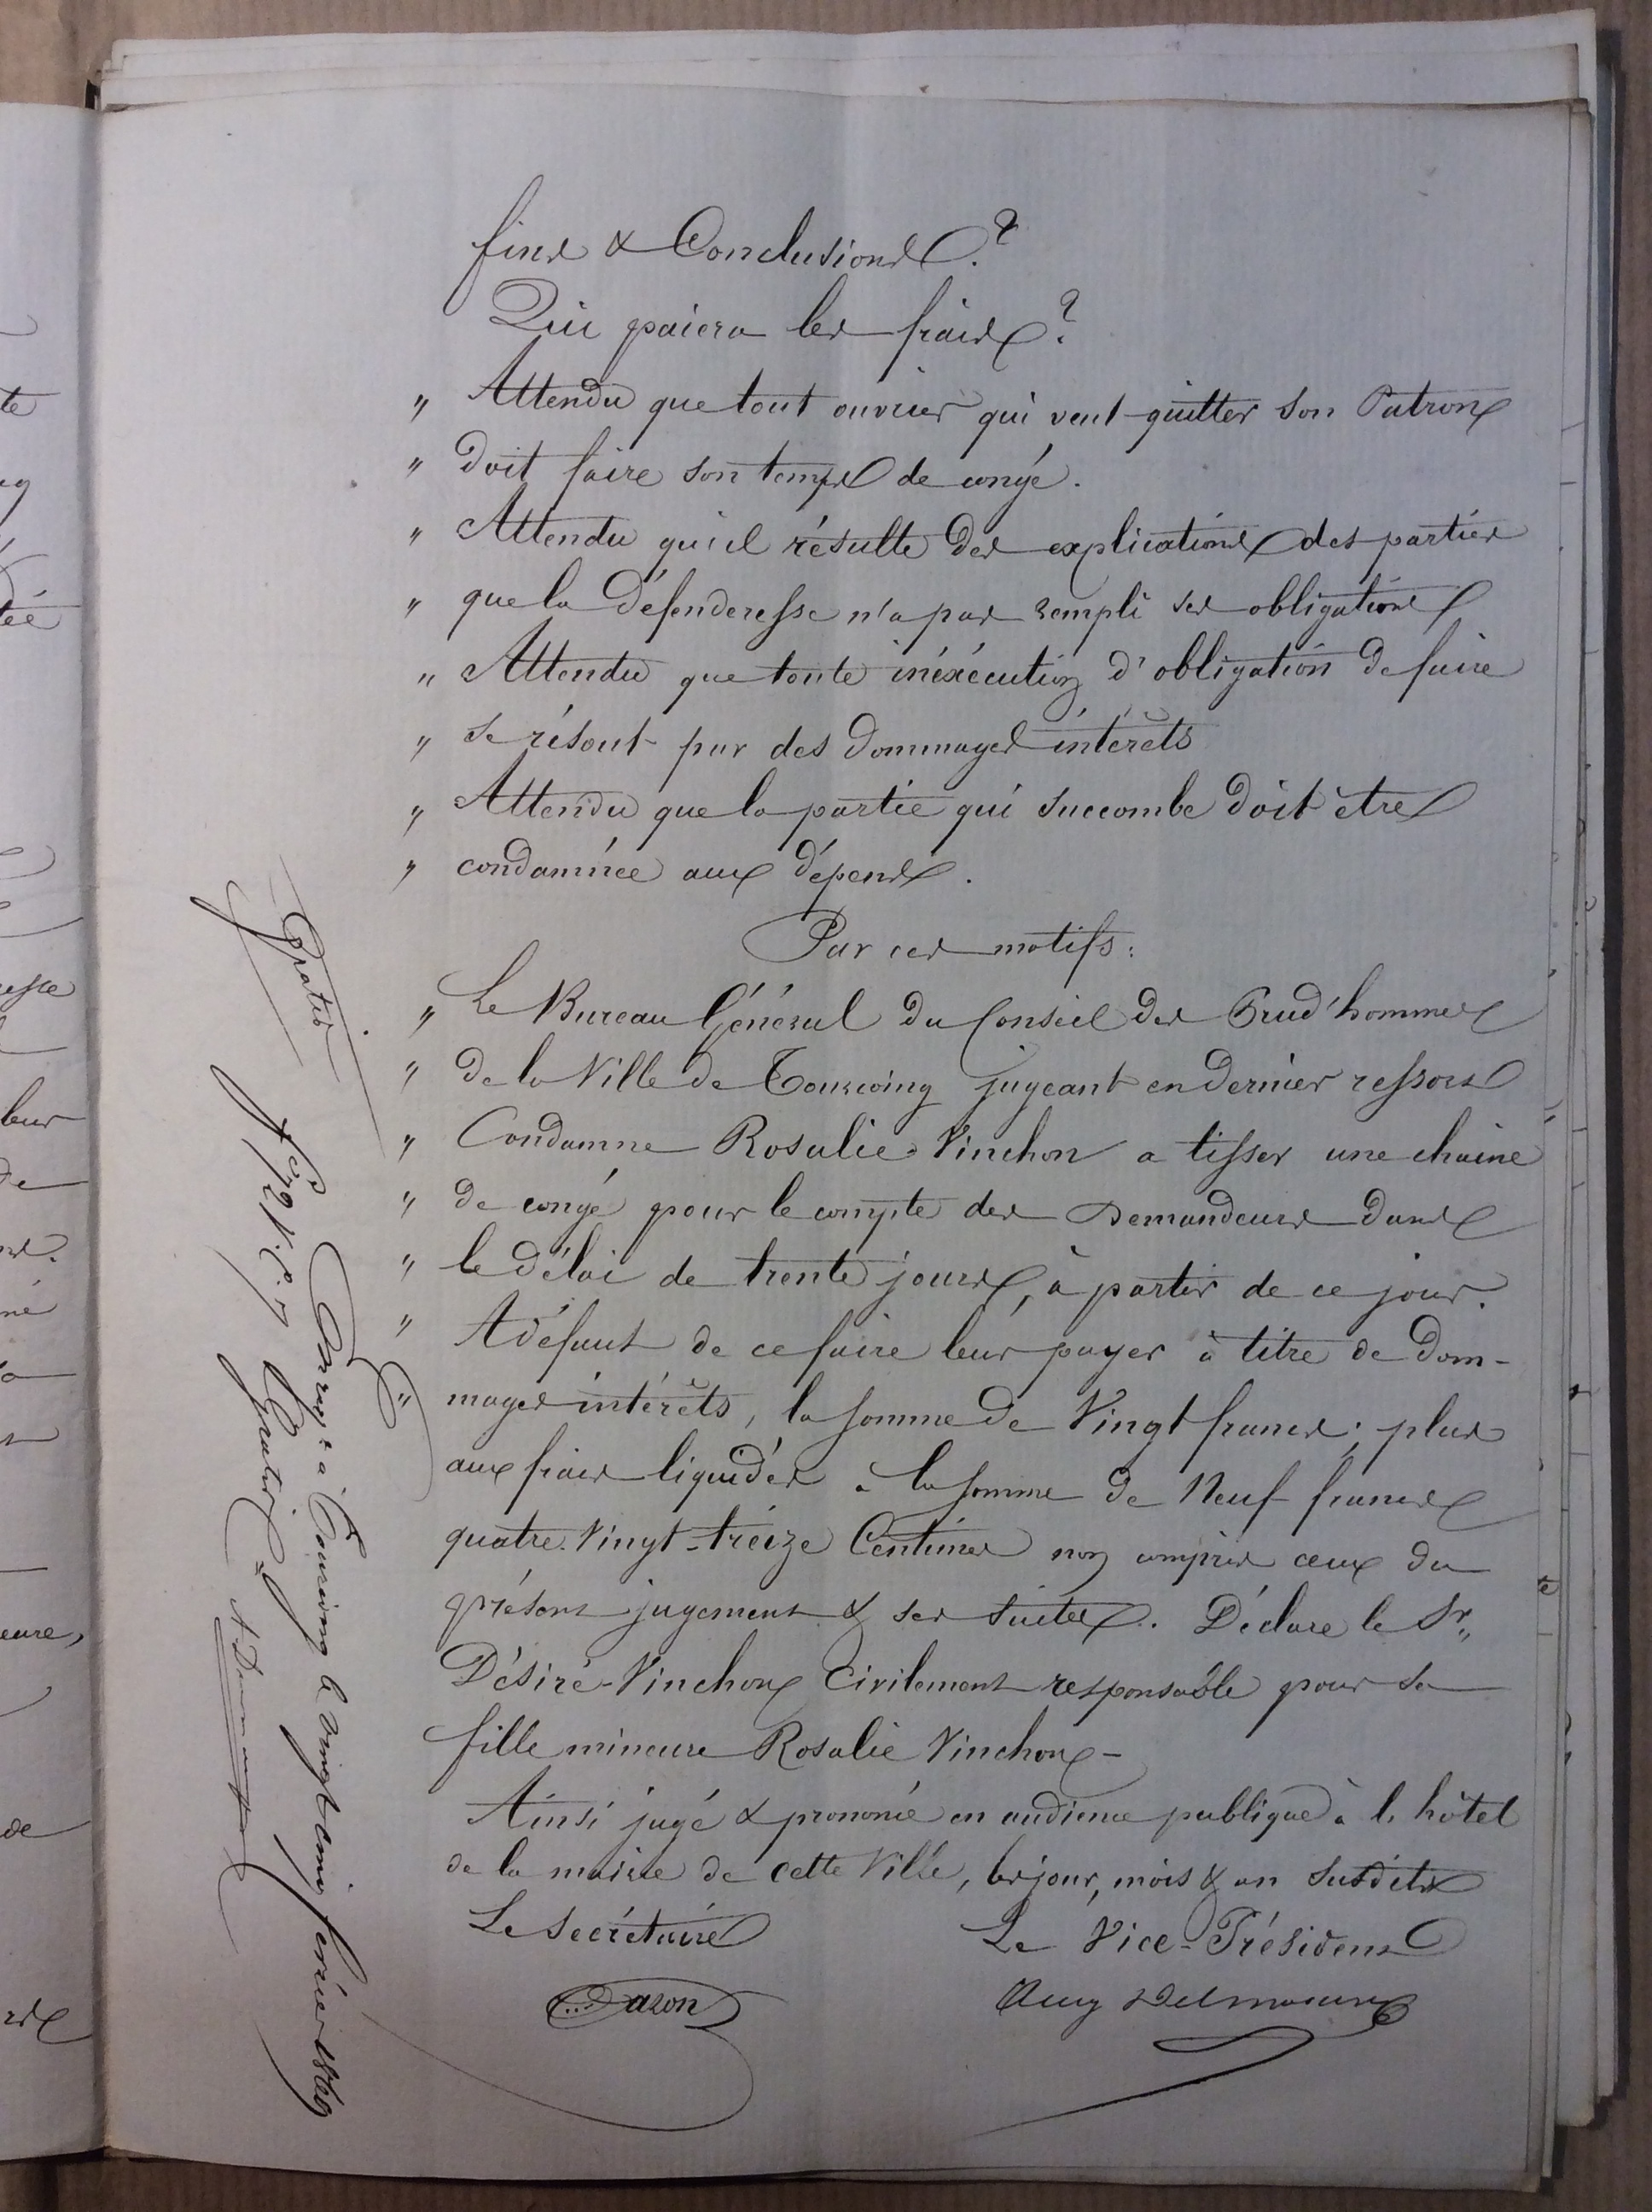 fins & Conclusions ?
Qui paiera les frais ?
" Attendu que tout ouvrier qui veut quitter son Patron
" doit faire son temps de congé.
" Attendu qu'il résulte des explications des parties
" que la défenderesse n'a pas rempli ses obligations
" Attendu que toute inéxécution d'obligation de faire
" se résout par des dommages intérêts
" Attendu que la partie qui succombe doit être
" condamnée aux dépens.
Par ces motifs :
" Le Bureau Général du Conseil des Prud'hommes
" de la Ville de Tourcoing jugeant en dernier ressort
" Condamne Rosalie Vinchon a tisser une chaine
" de congé pour le compte des Demandeurs dans
" le délai de trente jours, à partir de ce jour.
" A défaut de ce faire leur payer à titre de dom-
" mages intérêts, la somme de Vingt francs ; plus
aux frais liquidés a la somme de Neuf francs
quatre-Vingt-treize Centimes non compris ceux du
présent jugement & ses suites. Déclare le Sr
Désiré Vinchon Civilement responsable pour sa
fille mineure Rosalie Vinchon -
Ainsi jugé & prononcé en audience publique à l'hôtel
de la mairie de cette Ville, les jour, mois & an susdits
Le Secrétaire Le Vice-Président
Gratis
Enregt à Tourcoing le vingt cinq février 1869
Gratis